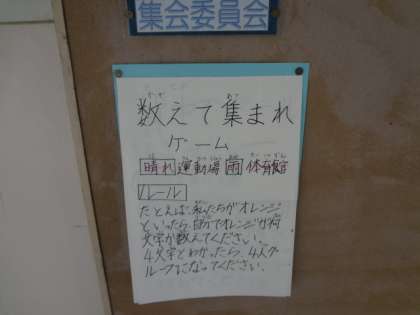 集会委員会
数えて集まれ
ゲーム
晴れ 運動場 雨 体育館
ルール
たとえば、私たちがオレンジ
といったら、自分でオレンジが何
文字か数えてください。
4文字とわかったら、4人グ
ループになってください。